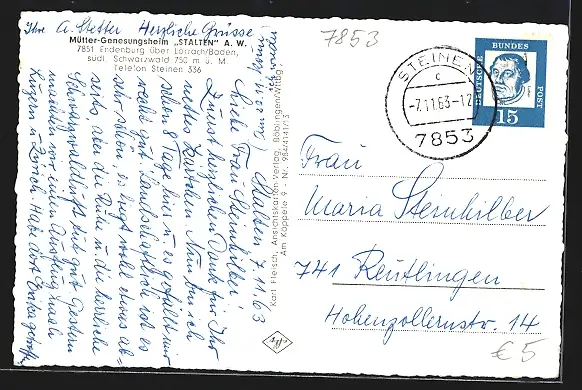 Ihre A. Stetter Herzliche Grüsse
Mütter-Genesungsheim „STALTEN" A. W.
7851 Endenburg über Lörrach/Baden,
südl. Schwarzwald 750 m ü. M.
Telefon Steinen 336
Stalten 7.11.63
Liebe Frau Steinhilber!
Zuerst herzlichen Dank für Ihr
nettes Nun bin ich
schon 8 Tage hier u. es gefällt mir
gut. Landschaftlich ist es
sehr schön, es liegt wohl etwas ab-
seits, aber die Ruhe u. die herrliche
Schwarzwaldluft gut. Gestern
machten wir einen Ausflug nach
u. Lörrach. Habe dort
Karl Fleisch, Ansichtskarten-Verlag, Böblingen/Württ.
Am Käppele 9 - Nr. 984/4141/13
7853
STEINEN
c
-7.11.63-12
7853
DEUTSCHE
BUNDES
POST
15
Frau
Maria Steinhilber
741 Reutlingen
Hohenzollernstr. 14
€ 5